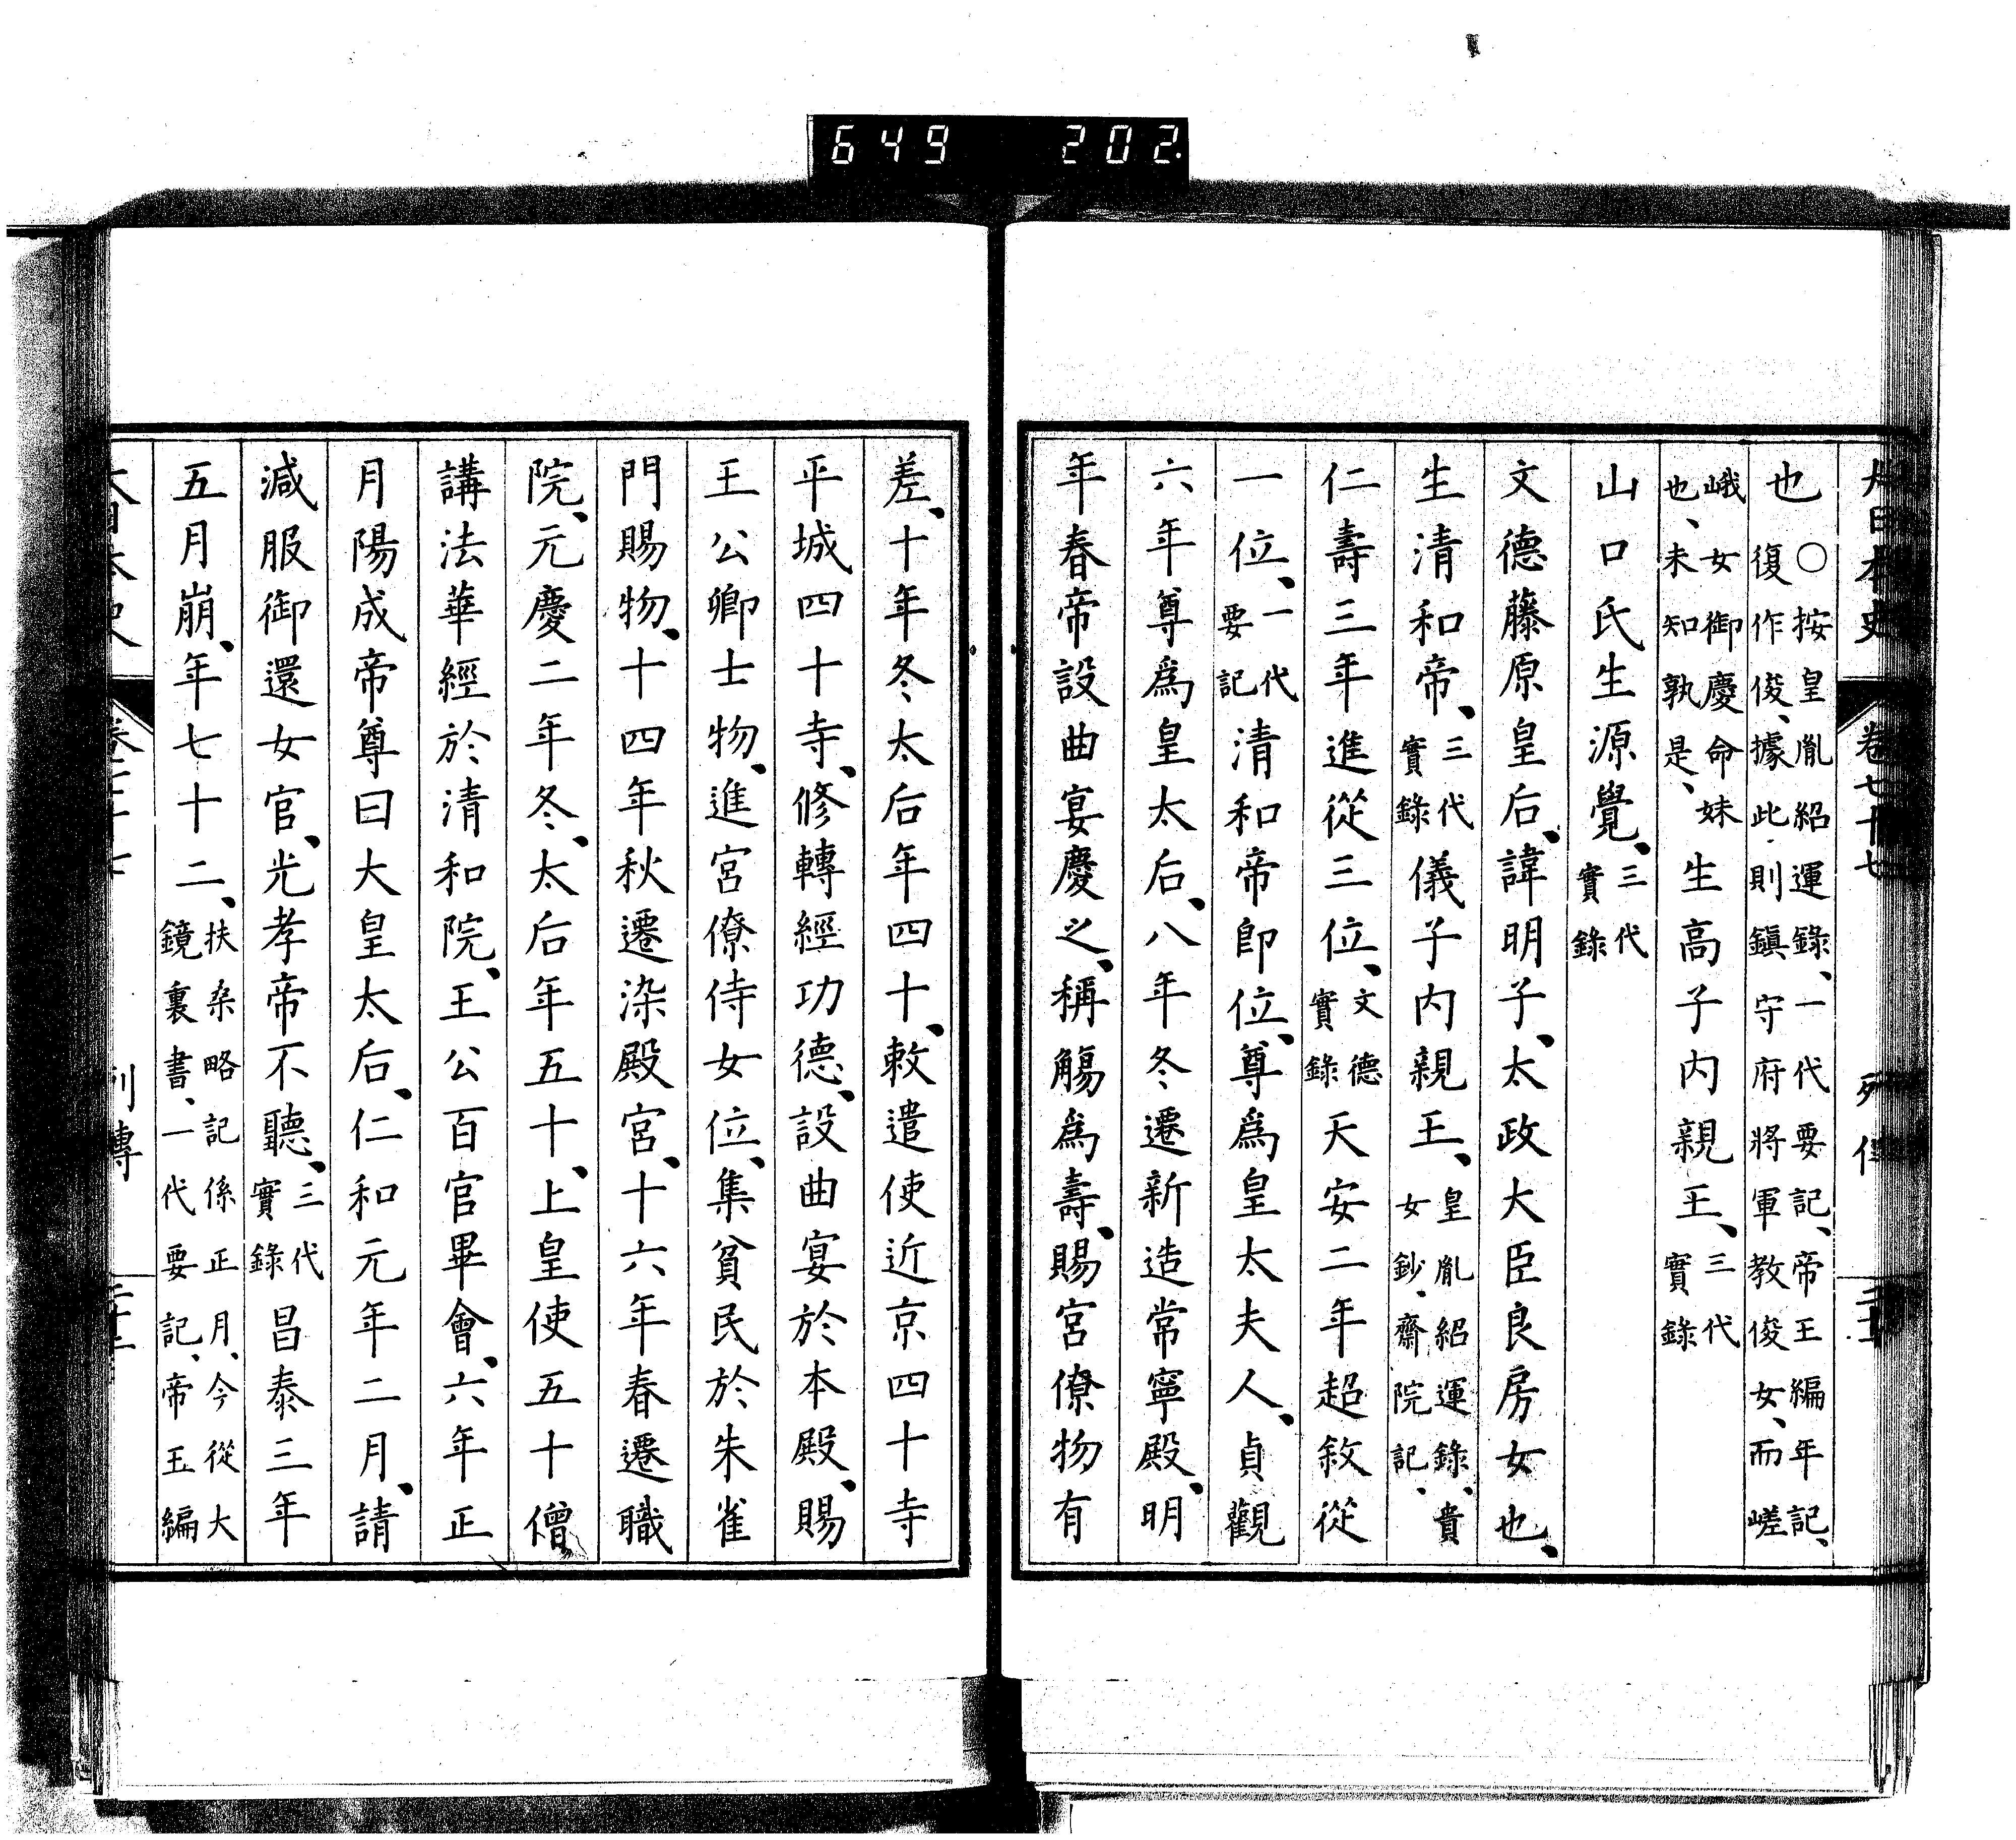 649 202.
大日本史 卷七十七 列傳
也〇按皇胤紹運錄、一代要記、帝王編年記、復作俊、據此、則鎭守府將軍教俊女、而嵯
峨女御慶命妹也、未知孰是、生高子内親王、三代實錄
山口氏生源覺、三代實錄
文德藤原皇后、諱明子、太政大臣良房女也、
生清和帝、三代實錄儀子内親王、皇胤紹運錄、貴女鈔、齋院記、
仁壽三年進從三位、文德實錄天安二年超敘從
一位、一代要記清和帝卽位、尊爲皇太夫人、貞觀
六年尊爲皇太后、八年冬遷新造常寧殿、明
年春帝設曲宴慶之、稱觴爲壽、賜宮僚物有
差、十年冬太后年四十、敕遣使近京四十寺
平城四十寺、修轉經功德、設曲宴於本殿、賜
王公卿士物、進宮僚侍女位、集貧民於朱雀
門賜物、十四年秋遷染殿宮、十六年春遷職
院、元慶二年冬、太后年五十、上皇使五十僧
講法華經於清和院、王公百官畢會、六年正
月陽成帝尊曰太皇太后、仁和元年二月、請
減服御還女官、光孝帝不聽、三代實錄昌泰三年
五月崩、年七十二、扶桒略記係正月、今從大鏡裏書、一代要記、帝王編
大日本史 卷七十七 列傳